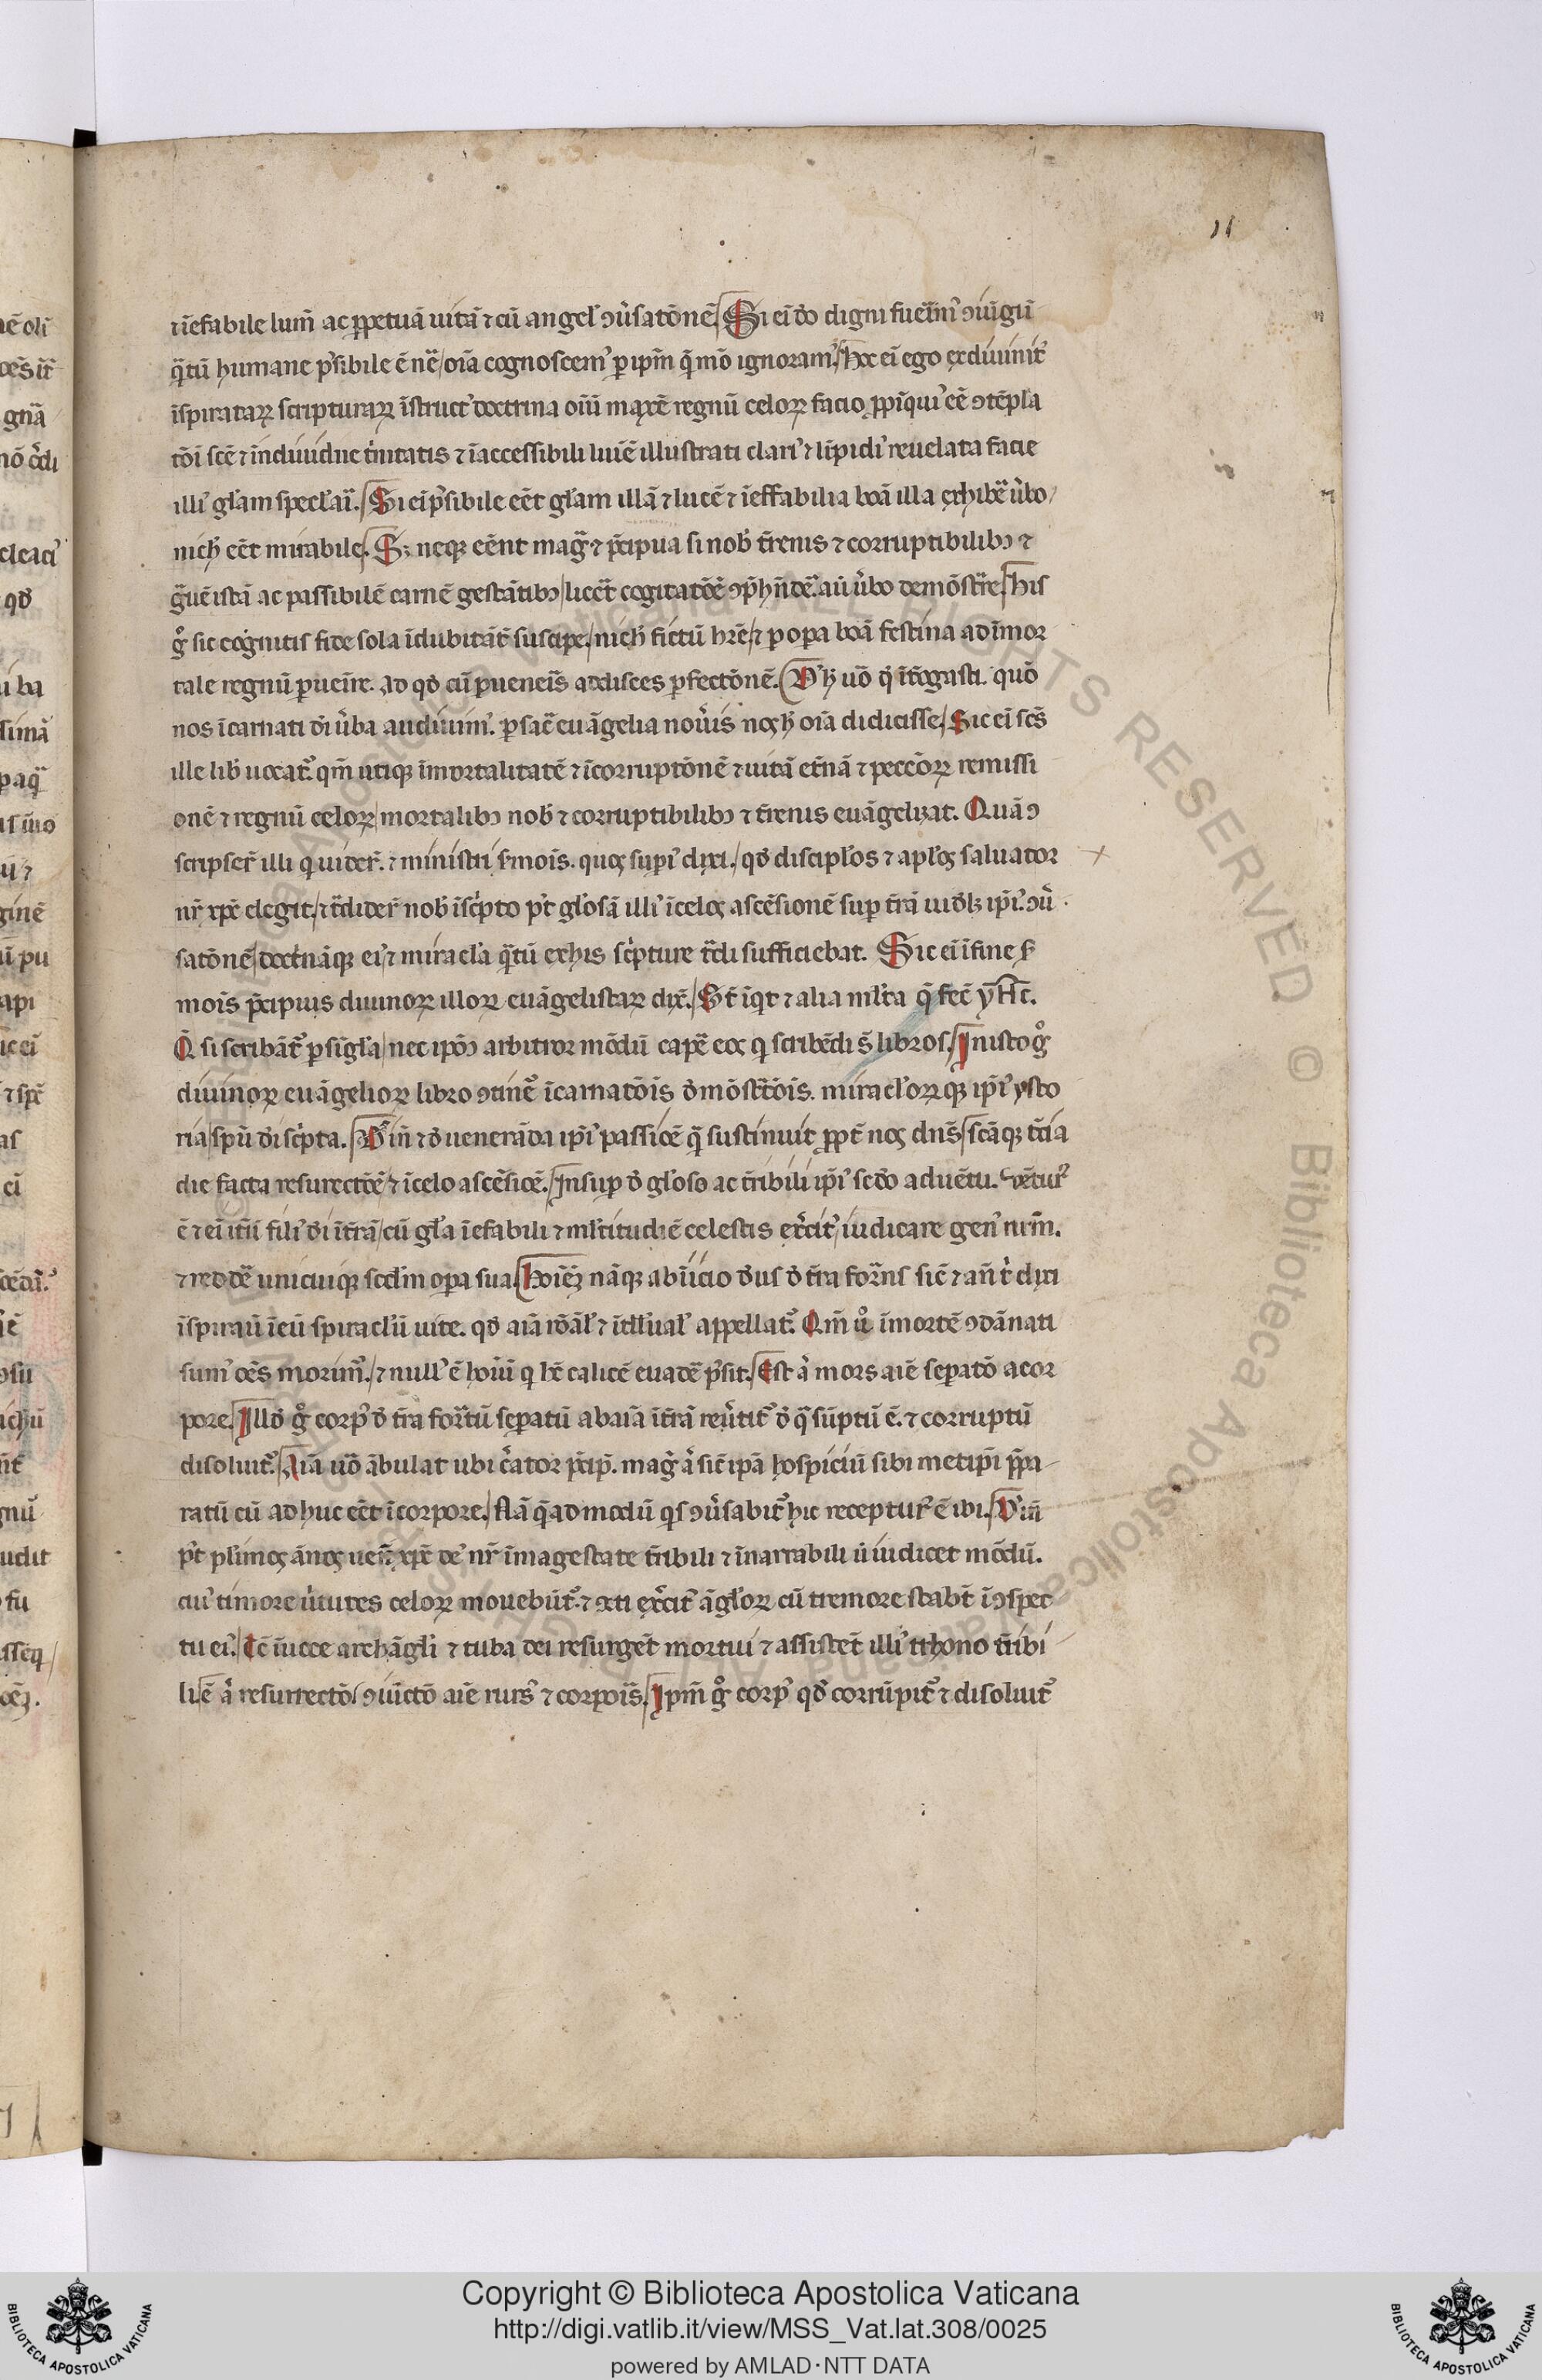 ⁊ īefabile lum̄ ac ꝑpetuā uitā ⁊ cū angel' ꝯu̾satōnē. Si eī do digni fuerim᾽ ꝯiūgū
q̄tū humane possibile ē nē / oīa cognoscem᾽ ꝑ ip̄m q̄ mō ignoram᾽. hec eī ego ex diuinit᾽
īspirataꝝ scripturaꝝ īstruct᾽ doctrina oīū maxē regnū celoꝝ facio ꝓpīqui᾽ cē ꝯtēpla
tōi scē ⁊ indiuidue tinitatis ⁊ īaccessibili luīē illustrati clari᾽ ⁊ līpidi᾽ reuelata facie
illi᾽ gl'am specl'ai. Si eī possibile eēt gl'am illā ⁊ lucē ⁊ īeffabilia boā illa exhibē u̾bo
nich' eēt mirabile. Sꝫ neqꝫ eēnt mag̃ ⁊ p̄cipua si nob' t̄renis ⁊ corruptibilibꝰ ⁊
g̃uē istā ac passibilē carnē gestātibꝰ / licet cogitatōe ꝯp̄hn̄de aū u̾bo demōstr̄e. his
g᾽ sic cognitis fide sola īdubitāt̄ suscipe. nich' fictū hr̄e / ⁊ ꝑ opa boā festina ad īmor
tale regnū ꝑueīre. Ad qd̄ cū ꝑueneīs addisces ꝑfectōnē. D' h' uō q' it̄ogasti. quō
nos īcarnati di u̾ba audiuim᾽. ꝑ sac̄ euāgelia nou̾is nos h' oīa didicisse. Sic eī scs̄
ille lib' uocat᾽. qm̄ utiqꝫ īmortalitatē ⁊ īcorruptōnē ⁊ uitā et̄nā ⁊ peccōꝝ remissi
onē ⁊ regnū celoꝝ mortalibꝰ nob' ⁊ corruptibilibꝰ ⁊ t̄renis euāgelizat. Quā ꝯ
scripser̄ illi q uider̄. ⁊ ministri s̄mois. quos supi᾽ dixi. qd̄ discipl'os ⁊ apl'os saluator
nr̄ xp̄c elegit. ⁊ t̄dider̄ nob' iscpto pt̄ gl'osā illi᾽ ī celos ascēsionē sup t̄rā iudꝫ ip̄i᾽. ꝯu̾
satōnē doct̄nāqꝫ ei᾽ ⁊ miracl'a q̄tū ex his scpture t̄di sufficiebat. Sic eī ī fine s̄
mois p̄cipuis diuinoꝝ illoꝝ euāgelistaꝝ dix̄. St̄ īqt ⁊ alia ml'ta q̄ fec̄ yHc.
Q̄ si scribāt᾽ ꝑ sigl'a nec ip̄ō arbitror mōdū cape eos q scribēdi s̄ libros. In isto g᾽
diuinoꝝ euāgelioꝝ libro ꝯtinet᾽ īcarnatōis d̄mōst̄tōis. miracl'oꝝqꝫ ip̄i᾽ ysto
ria spū di scpta. Dīn ⁊ d̄ uenerāda ip̄i᾽ passiōe q̄ sustinuit ꝓpt̄ nos dn̄s scāqꝫ t̄cia
die facta resurectōe ⁊ ī celo ascēsiōe. Insup d̄ gl'oso ac t̄ribili ip̄i᾽ sedo aduētu. Vētur᾽
ē ⁊ eī it̄ū fili᾽ di ī t̄rā cū gl'a īefabili ⁊ ml'titudiē celestis ex̄cit᾽ iudicare gen᾽ nrm̄.
⁊ redde unicuiqꝫ scdm opa sua. hoiēꝫ nāqꝫ ab īicio d᾽us d̄ t̄ra forans sic̄ ⁊ an̄ t' dixi
īspiraū ī eū spiracl'ū uite. qd̄ aiā rōāl' ⁊ itl'lual' appellat᾽. Qm̄ u᾽ ī mortē ꝯdānati
sum᾽ oēs morim᾽. ⁊ null᾽ ē hoīū q hc calicē euadē possit. Est a᾽ mors aīe sepatō a cor
pore. Illd̄ g᾽ corp᾽ d̄ t̄ra formatū sepatū ab aia ī t̄rā reu̾tit᾽ d̄ q̄ sūptū ē. ⁊ corruptū
disoluit᾽. Aiā uō ābulat ubi c̄ator p̄cip. mag̃ a᾽ sic̄ ipā hospiciū sibi metip̄i p̄pa
ratū cū adhuc eēt ī corpore. Nā q̄ad modū qs ꝯu̾sabit᾽ hic receptur᾽ ē ibi. Dīn
pt̄ pl'imos ānos ueīt xp̄c de᾽ nr̄ ī magestate t̄ribili ⁊ īnarrabili ū iudicet mōdū.
cui᾽ timore u̾tutes celoꝝ mouebūt᾽. ⁊ oti ex̄cit᾽ āgl'oꝝ cū tremore stabt̄ ī ꝯspec
tu ei᾽. Tc̄ ī uoce archāgl'i ⁊ tuba dei resurget̄ mortui ⁊ assistet̄ illi᾽ tthono t̄ribi
li ē a᾽ resurrectō ꝯiūctō aīe rurs᾽ ⁊ corpois. Ipm̄ g᾽ corp᾽ qd̄ corrūpit᾽ ⁊ disoluit᾽
Copyright © Biblioteca Apostolica Vaticana
http://digi.vatlib.it/view/MSS_Vat.lat.308/0025
powered by AMLAD·NTT DATA